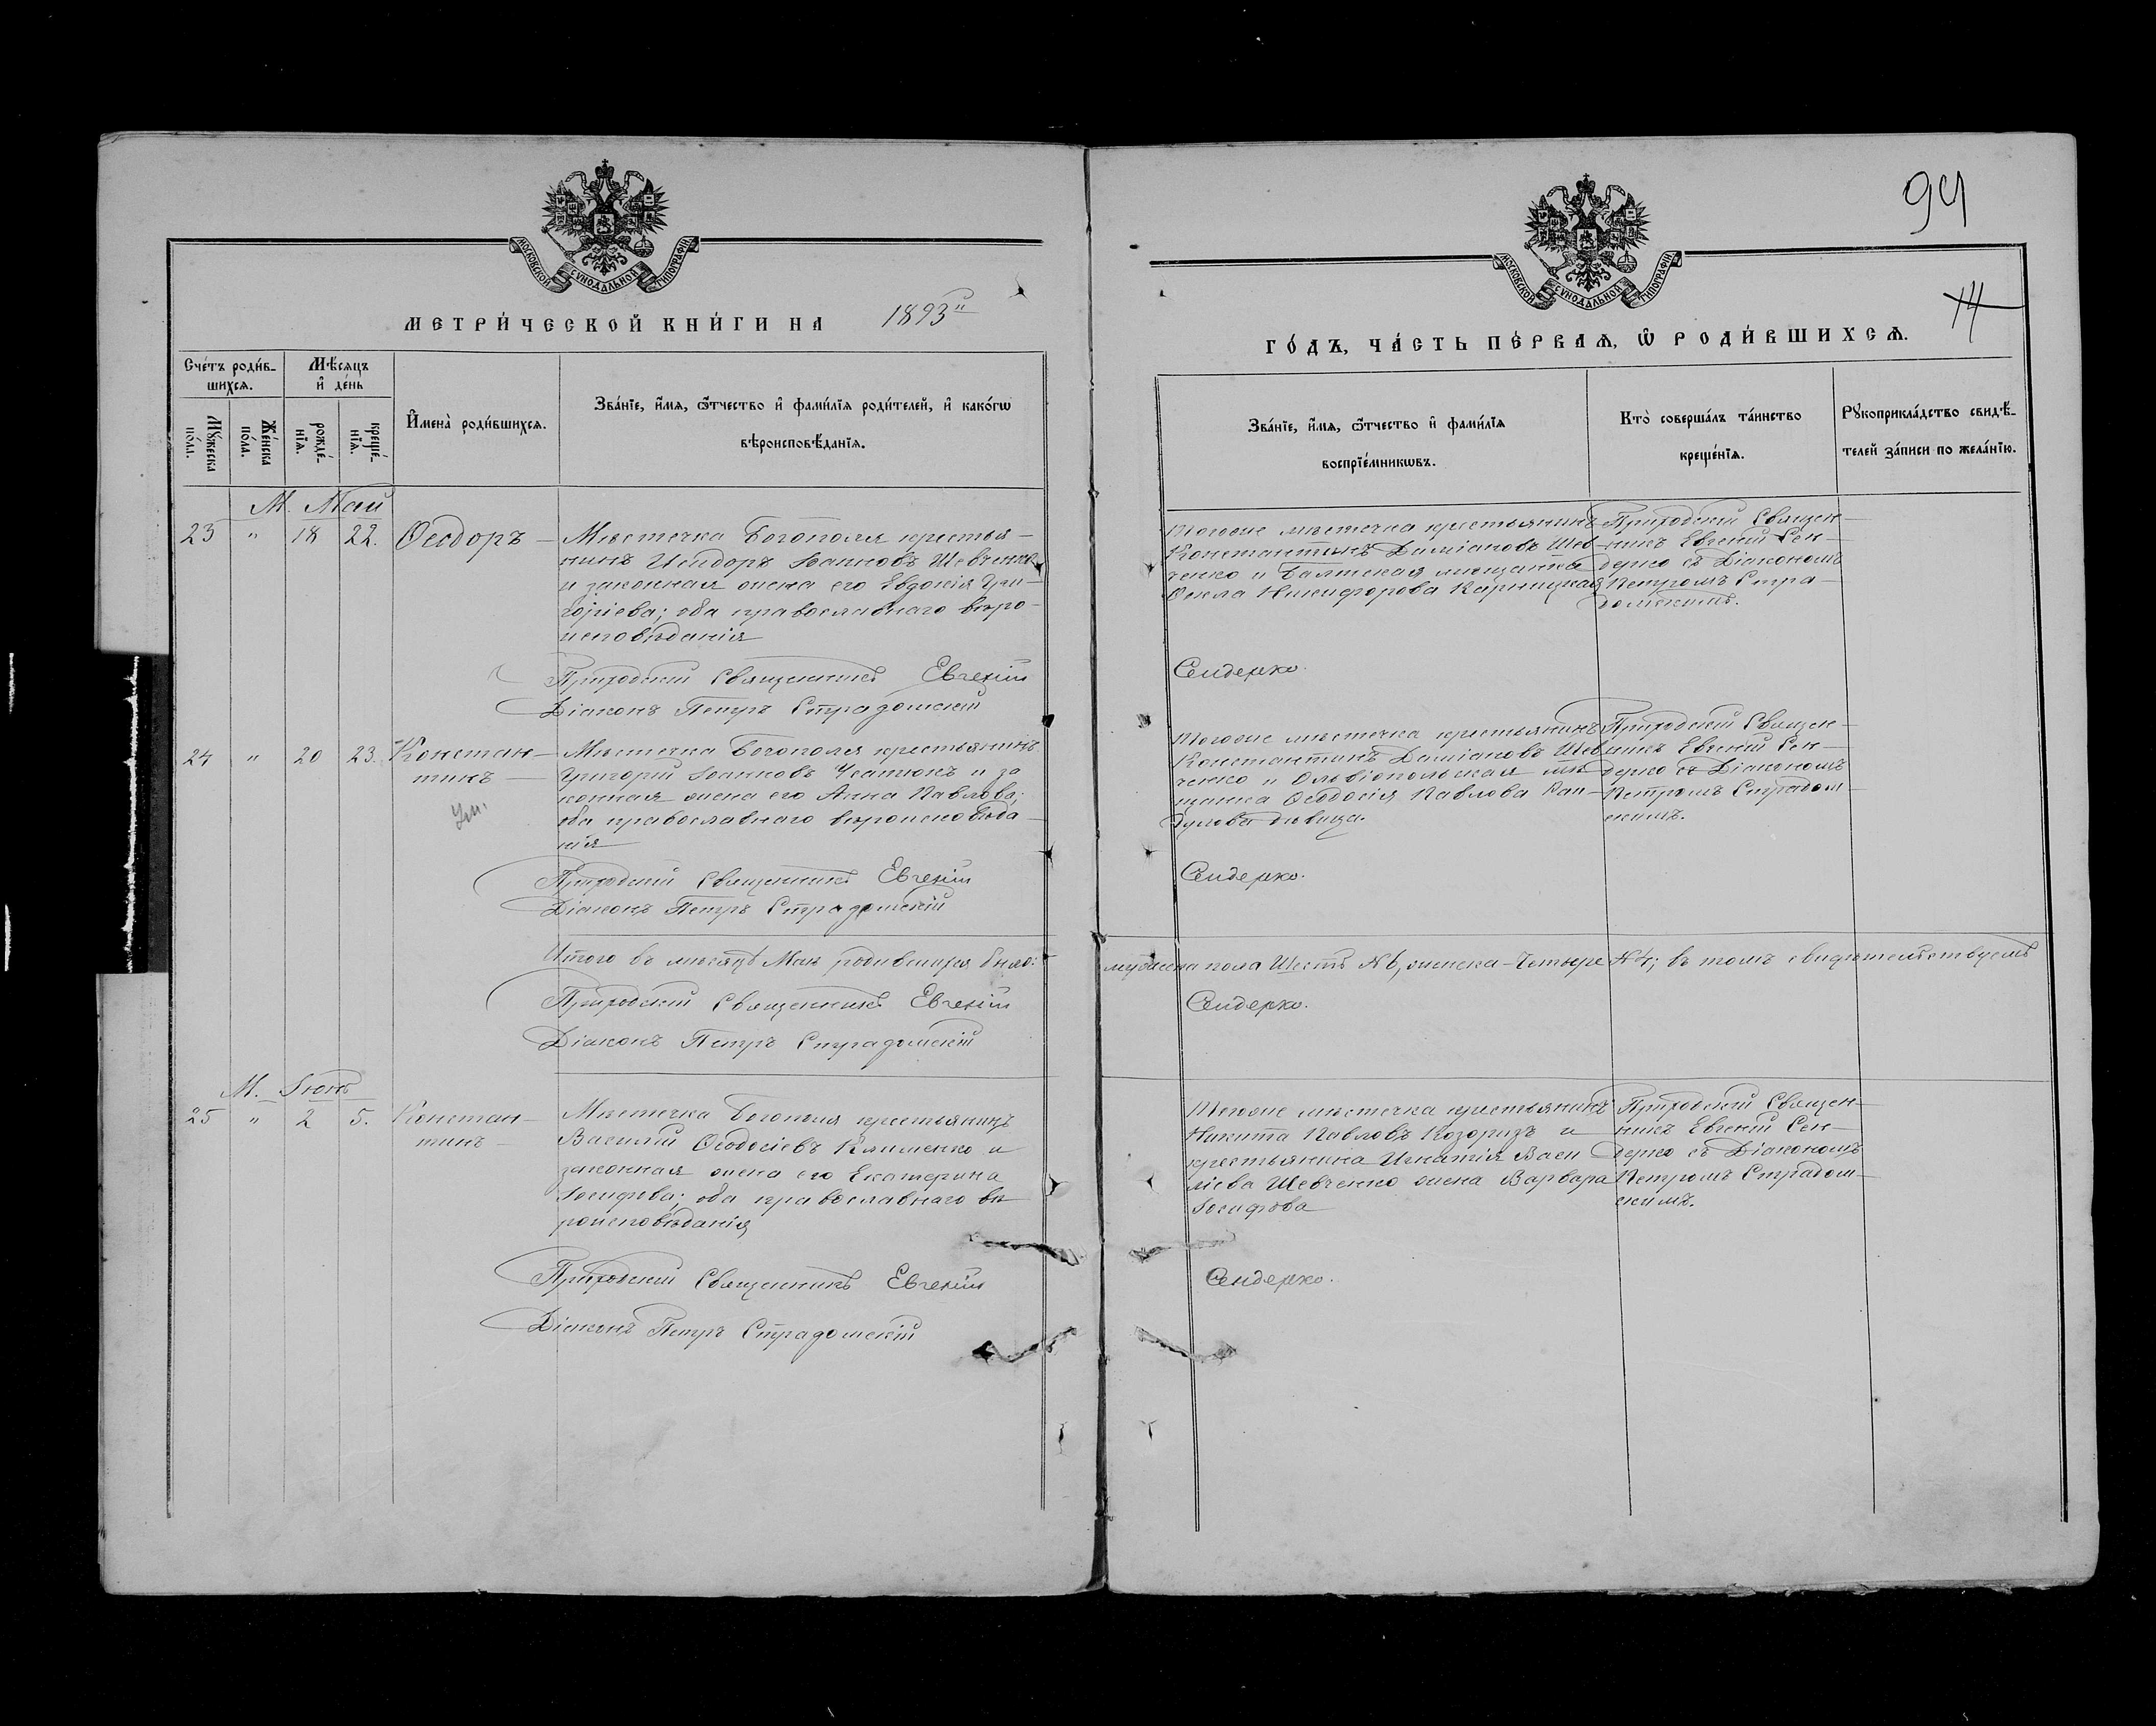 МОСКОВСКОЙ СУНОДАЛЬНОЙ ТИПОГРАФІИ
МЕТРИ́ЧЕСКОЙ КНИ́ГИ НА 1893й
Сче́тъ роди́в-
шихсѧ.
Мѣ́сяцъ
и҆ де́нь
Мꙋ́жеска
по́ла.
Же́нска
по́ла.
рожде́-
нїѧ.
креще́-
нїѧ.
И҆мена̀ роди́вшихсѧ.
Зва́нїе, и҆́мѧ, ѻ҆́тчество и҆ фами́лїѧ роди́телей, и҆ како́гѡ
вѣроисповѣ́данїѧ.
М. Май
23 " 18 22. Ѳеодоръ —
Мѣстечка Богополя крестья-
нинъ Исидоръ Іоанновъ Шевченко
и законная жена его Евдокія Гри-
горіева; оба православнаго вѣро-
исповѣданія
Приходскій Священникъ Евгеній
Діаконъ Петръ Страдомскій
24 " 20 23. Констан-
тинъ —
Ум.
Мѣстечка Богополя крестьянинъ
Григорій Іоанновъ и за
конная жена его Анна Павлова;
оба православнаго вѣроисповѣда-
нія
Приходскій Священникъ Евгеній
Діаконъ Петръ Страдомскій
Итого въ мѣсяцѣ Маѣ родившихся было:
Приходскій Священникъ Евгеній
Діаконъ Петръ Страдомскій
М. Іюнь
25 " 2 5. Констан-
тинъ —
Мѣстечка Богополя крестьянинъ
Василій Ѳеодосіевъ Клименко и
законная жена его Екатерина
Іосифова; оба православнаго вѣ
роисповѣданія
Приходскій Священникъ Евгеній
Діаконъ Петръ Страдомскій
94
14
МОСКОВСКОЙ СУНОДАЛЬНОЙ ТИПОГРАФІИ
ГО́ДЪ, ЧА́СТЬ ПЕ́РВАѦ, Ѡ҆ РОДИ́ВШИХСѦ.
Зва́нїе, и҆́мѧ, ѻ҆́тчество и҆ фами́лїѧ
воспрїе́мникѡвъ.
Кто̀ соверша́лъ та́инство
креще́нїѧ.
Рꙋкоприкла́дство свидѣ́-
телей за́писи по жела́нїю.
Тогоже мѣстечка крестьянинъ
Константинъ Даміановъ Шев-
ченко и Балтская мѣщанка
Ѳекла Никифорова Карницкая
Приходскій Священ-
никъ Евгеній Сен-
дерко съ Діакономъ
Петромъ Стра-
домскимъ.
Сендерко.
Тогоже мѣстечка крестьянинъ
Константинъ Даміановъ Шев
ченко и Ольвіопольская мѣ
щанка Ѳеодосія Павлова Кан-
дулова дѣвица.
Приходскій Священ-
никъ Евгеній Сен-
дерко съ Діакономъ
Петромъ Страдом-
скимъ.
Сендерко.
мужеска пола Шесть №6, женска - Четыре №4; въ томъ свидѣтельствуемъ
Сендерко.
Тогоже мѣстечка крестьянинъ
Никита Павловъ Козоризъ и
крестьянина Игнатія Васи
ліева Шевченко жена Варвара
Іосифова
Приходскій Священ-
никъ Евгеній Сен-
дерко съ Діакономъ
Петромъ Страдом-
скимъ.
Сендерко.